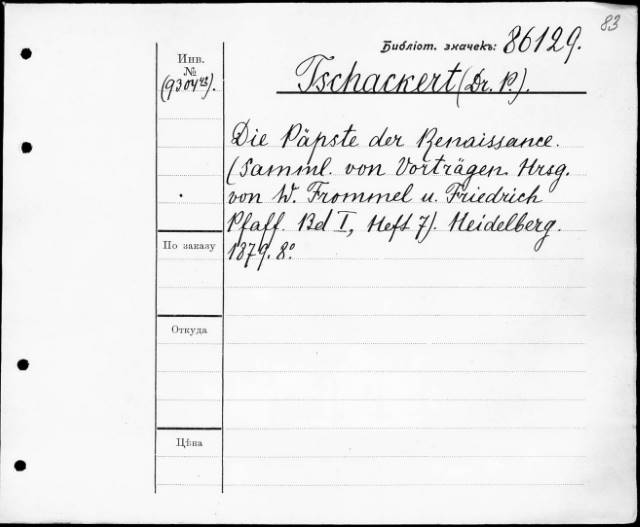 83
Библіот. значекъ: 86129.
Инв.
№
Tschackert (Dr. P.).
Die Päpste der Renaissance.
(Samml. von Vorträgen. Hrsg.
von W. Frommel u. Friedrich
Pfaff. Bd I, Heft 7). Heidelberg.
1879. 8°
По заказу
Откуда
Цѣна